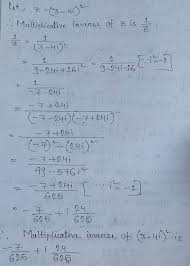 Let, z = (3-4i)²
∴ Multiplicative inverse of z is 1/z
1/z = 1/(3-4i)²
= 1/(9-24i+16i²) = 1/(9-24i-16) [∵ i²=-1]
= 1/(-7-24i)
= (-7+24i)/((-7-24i)(-7+24i))
= (-7+24i)/((-7)²-(24i)²)
= (-7+24i)/(49-576i²)
= (-7+24i)/625 [∵ i²=-1]
= -7/625 + i 24/625
∴ Multiplicative inverse of (3-4i)² is
-7/625 + i 24/625